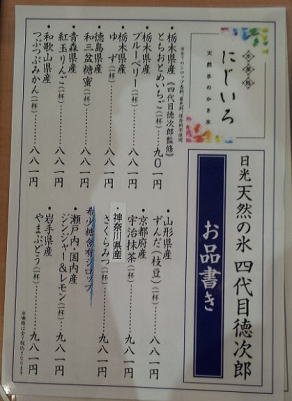 にじいろ
天然氷のかき氷
日光 天然の氷 四代目徳次郎
お品書き
・栃木県産(四代目徳次郎監修)
とちおとめいちご(一杯)……九〇一円
・栃木県産
ブルーベリー(一杯)……八八一円
・栃木県産
ゆず(一杯)……八八一円
・徳島県産
和三盆糖蜜(一杯)……八八一円
・青森県産
紅玉りんご(一杯)……八八一円
・和歌山県産
つぶつぶみかん(一杯)……八八一円
・山形県産
ずんだ(枝豆)(一杯)……九八一円
・京都府産
宇治抹茶(一杯)……九八一円
・神奈川県産
さくらみつ(一杯)……九八一円
希少糖含有シロップ
・瀬戸内・国内産
ジンジャー&レモン(一杯)……九八一円
・岩手県産
やまぶどう(一杯)……九八一円